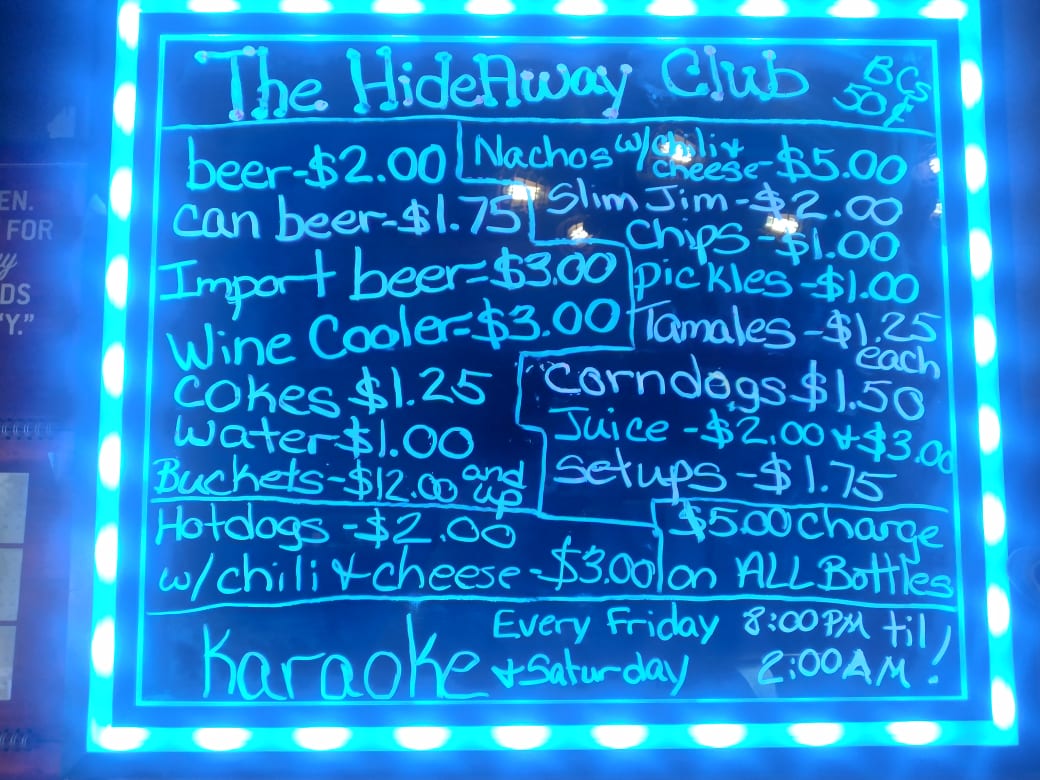 The HideAway Club
BCs
50¢
beer-$2.00
can beer-$1.75
Import beer-$3.00
Wine Cooler-$3.00
Cokes $1.25
Water-$1.00
Buckets-$12.00 and up
Nachos w/chili & cheese-$5.00
Slim Jim-$2.00
Chips-$1.00
Pickles-$1.00
Tamales-$1.25
each
corndogs $1.50
Juice-$2.00 & $3.00
setups-$1.75
Hotdogs-$2.00
w/chili & cheese-$3.00
$5.00 Charge
on ALL Bottles
Karaoke
Every Friday
& Saturday
8:00PM til
2:00AM!
EN.
FOR
DS
Y."